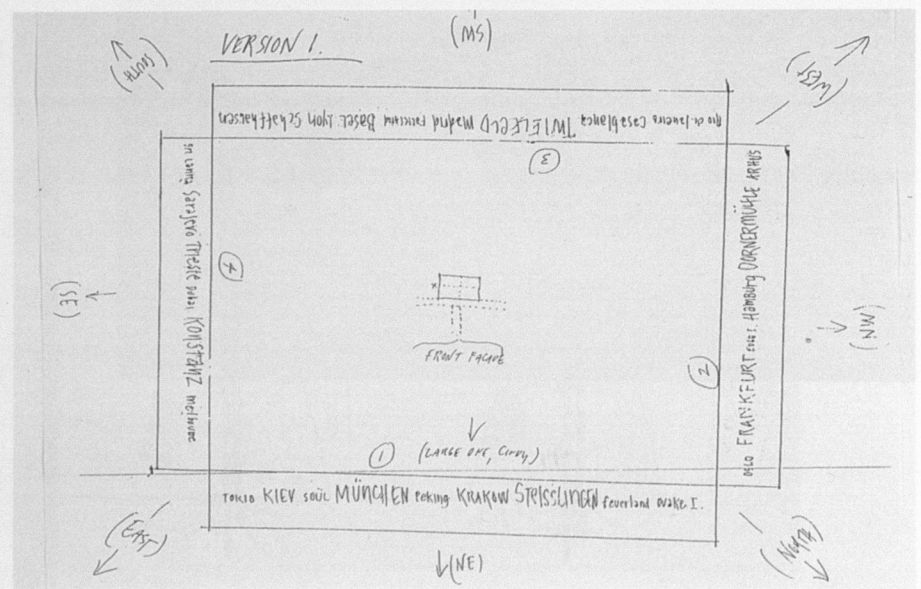 VERSION 1.
(SW)
(SOUTH)
(WEST)
Rio de Janeiro Casablanca TWIELFELD Madrid Basel Lyon Schaffhausen
3
Sarajevo Trieste Dubai KONSTANZ melbourne
4
(SE)
x
FRONT FACADE
OSLO FRANKFURT Hamburg DORNERMÜHLE ARHUS
2
(NW)
1
(LARGE ONE, CINDY,)
TOKIO KIEV SOÜL MÜNCHEN Peking KRAKOW STEISSLINGEN feuerland
(EAST)
(NE)
(North)